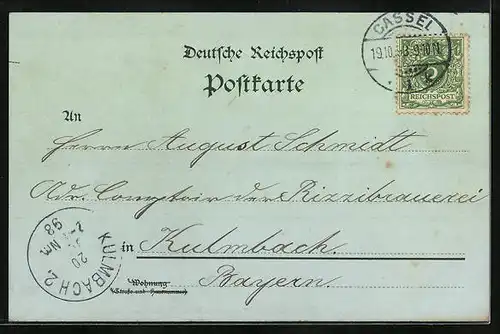 CASSEL
19.10.98 9-10N
REICHSPOST
Deutsche Reichspost
Postkarte
An
Herrn August Schmidt
Adr. Comptoir der Rizzibrauerei
in Kulmbach.
Bayern.
Wohnung
(Straße und Hausnummer)
KULMBACH 2.
20
Nm
98